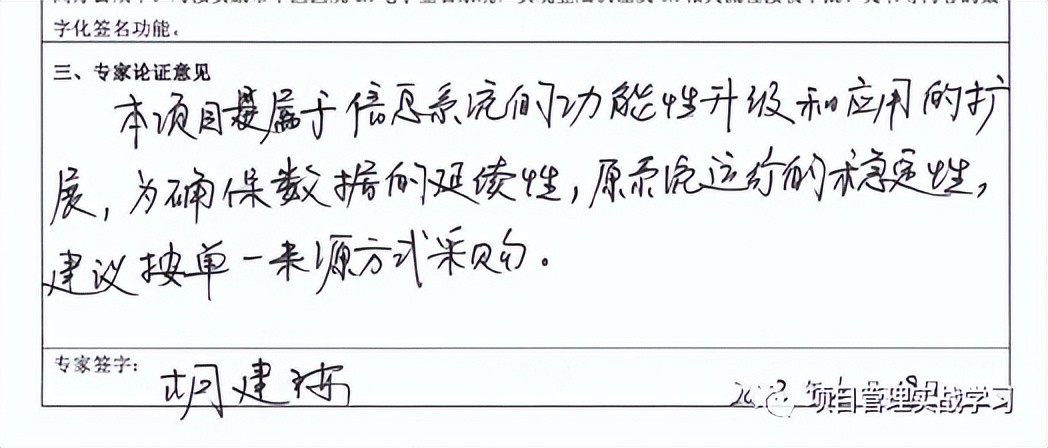 字化签名功能。
三、专家论证意见
本项目是属于信息系统的功能性升级和应用的扩
展，为确保数据的延续性，原系统运行的稳定性，
建议按单一来源方式采购。
专家签字：
胡建
项目管理实战学习